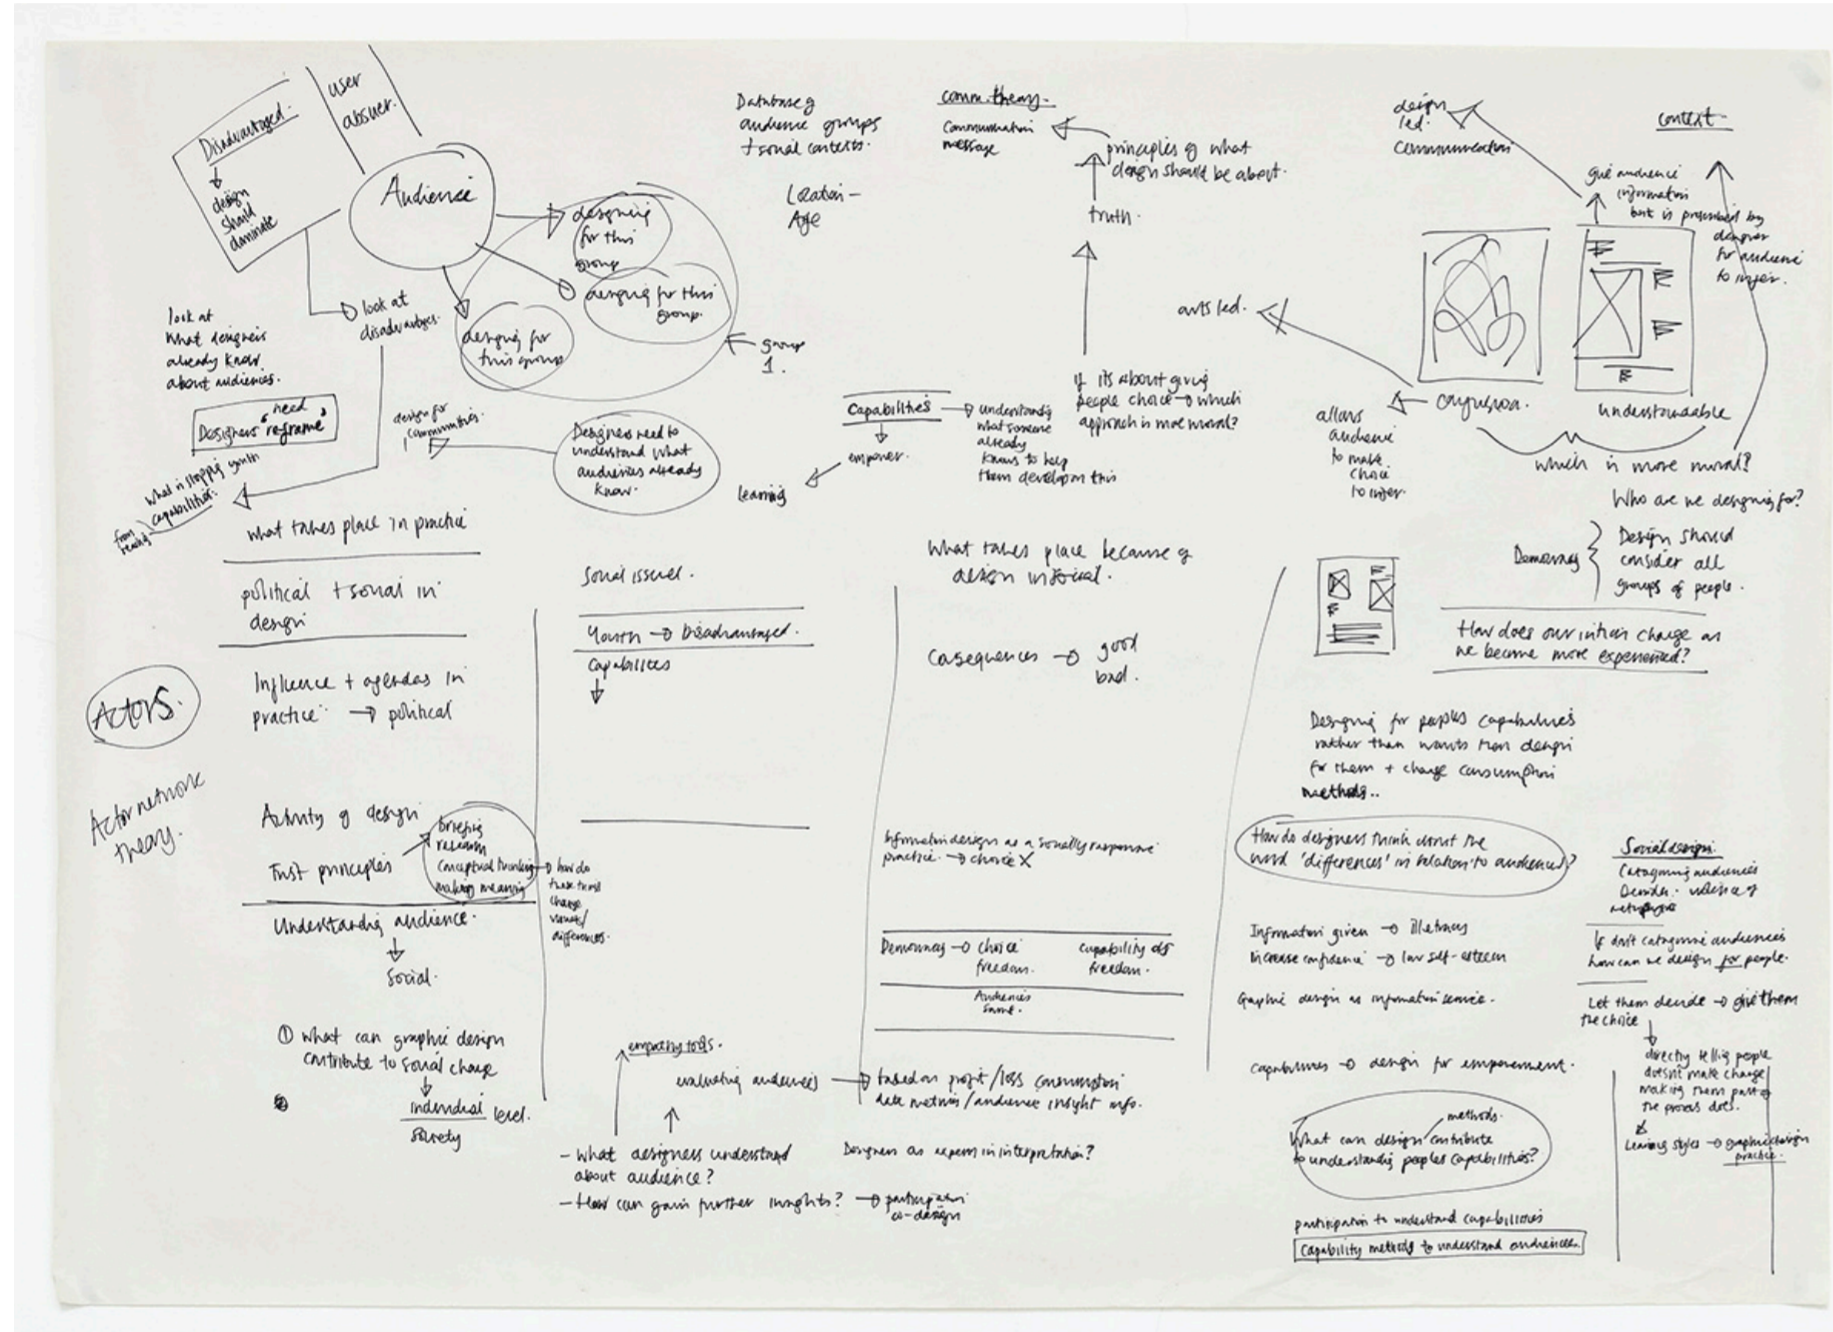 Disadvantaged.
design
should
dominate
user
absuer.
Audience
designing
for this
group
designing for this
group.
designing for
this group
group
1.
look at
disadvantages.
look at
what designers
already know
about audiences.
need
Designers 'reframe'
design for
communities.
Designers need to
understand what
audiences already
know.
what is stopping youth
capabilities.
from
Database of
audience groups
+ social contexts.
Location –
Age
comm. theory.
communication
message
principles of what
design should be about.
truth.
if its about giving
people choice → which
approach is more moral?
Capabilities → understanding
what someone
already
knows to help
them develop on this
empower.
learning
arts led.
design
led.
communication
context.
give audience
information
but is prescribed by
designer
for audience
to infer.
confusion.
understandable
allows
audience
to make
choice
to infer.
which is more moral?
Who are we designing for?
Democracy
Design should
consider all
groups of people.
How does our intion change as
we become more experienced?
what takes place in practice
political + social in
design
Influence + agendas in
practice → political
Actors.
Actor network
theory.
Activity of design
First principles
briefing
research
conceptual thinking
making meaning
how do
these things
change
values/
differences.
Understanding audience.
Social.
① What can graphic design
contribute to social change
individual level.
society
Social issues.
Youth → Disadvantaged.
Capabilities
What takes place because of
design in social.
Consequences → good
bad.
Information design as a socially responsive
practice. → choice X
Democracy → choice
freedom.
capability of
freedom.
Audiences
same.
empathy tools.
evaluating audiences → based on profit/loss consumption
data metrics/audience insight info.
– What designers understand
about audience?
– How can gain further insights? → participation
co-design
Designers as experts in interpretation?
Designing for peoples capabilities
rather than wants then design
for them + change consumption
methods..
How do designers think about the
word 'differences' in relation to audiences?
Information given → illiteracy
increase confidence → low self-esteem
Graphic design as information service.
capabilities → design for empowerment.
methods.
What can design contribute
to understanding peoples capabilities?
participation to understand capabilities
Capability methods to understand audiences.
Social design.
Catagorising audiences
If don't catagorise audiences
how can we design for people.
Let them decide → give them
the choice
directly telling people
doesn't make change
making them part of
the process does.
Learning styles → graphic design
practice.